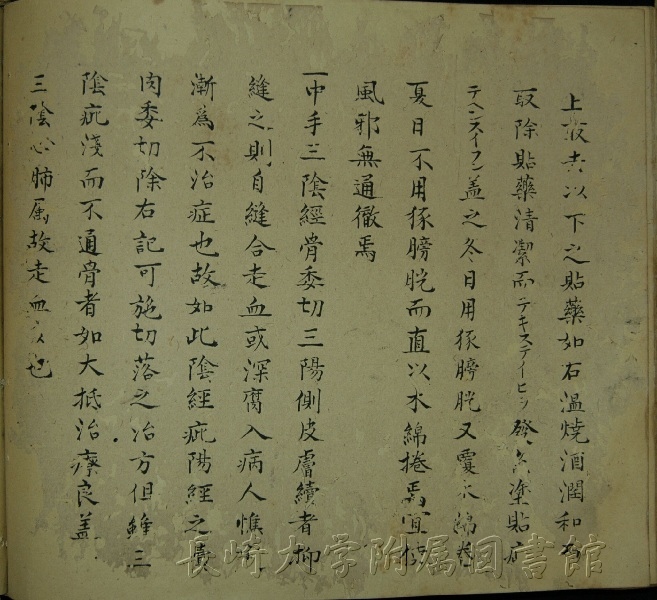 上敷去以下之貼藥如右温焼酒潤和為
取除貼藥清潔而テキステイヒシ發各塗貼疵
テヘンスイフン蓋之冬日用豚膀胱又覆水綿巻
夏日不用豚膀胱而直以水綿捲焉宜使
風邪無通徹焉
一中手三陰經骨委切三陽側皮膚續者抑
縫之則自縫合走血或深腐入病人憔悴
漸為不治症也故如此陰經疵陽經之責
肉委切除右記可施切落之治方但雖三
陰疵淺而不通骨者如大抵治療良蓋
三陰心肺属故走血多也
長崎大学附属図書館